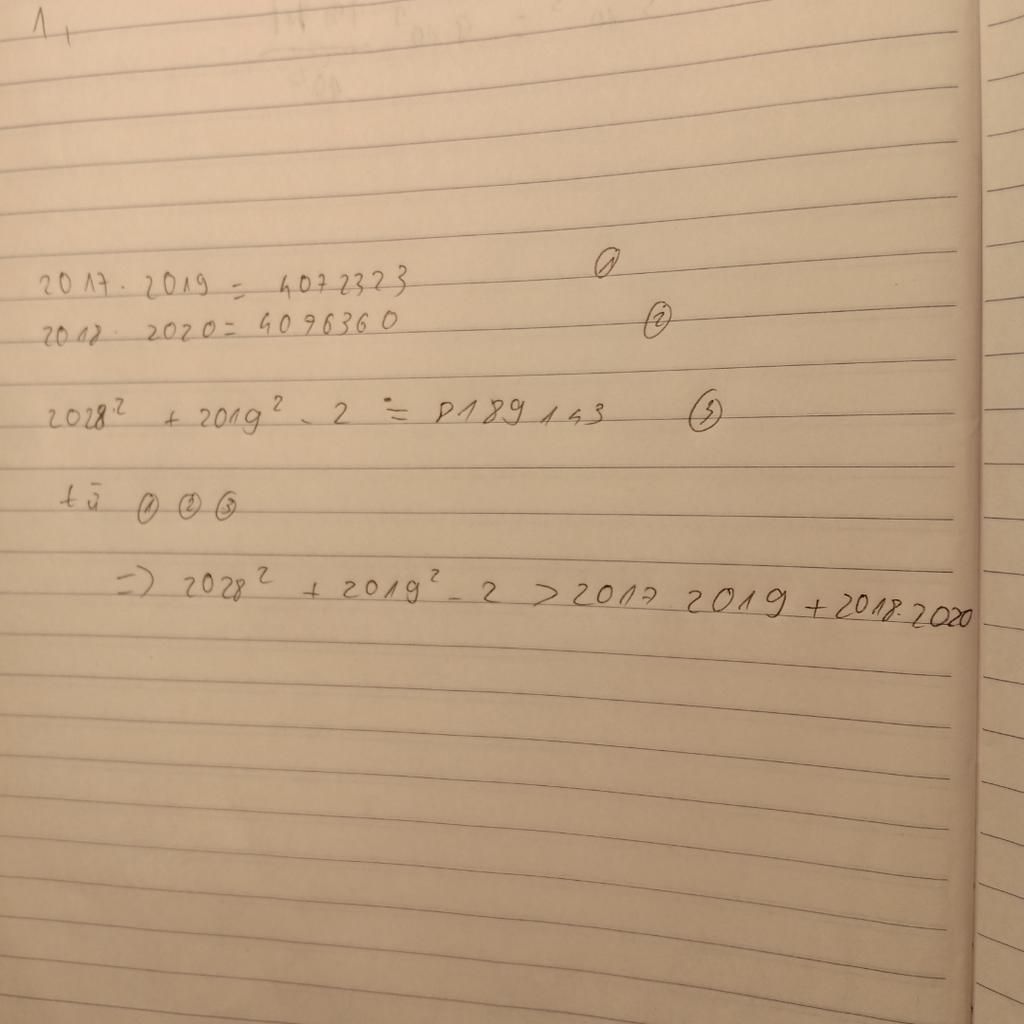 1,
2017. 2019 = 4072323 ①
2018. 2020 = 4096360 ②
2028² + 2019² - 2 = 8189143 ③
từ ① ② ③
=> 2028² + 2019² - 2 > 2017 2019 + 2018.2020